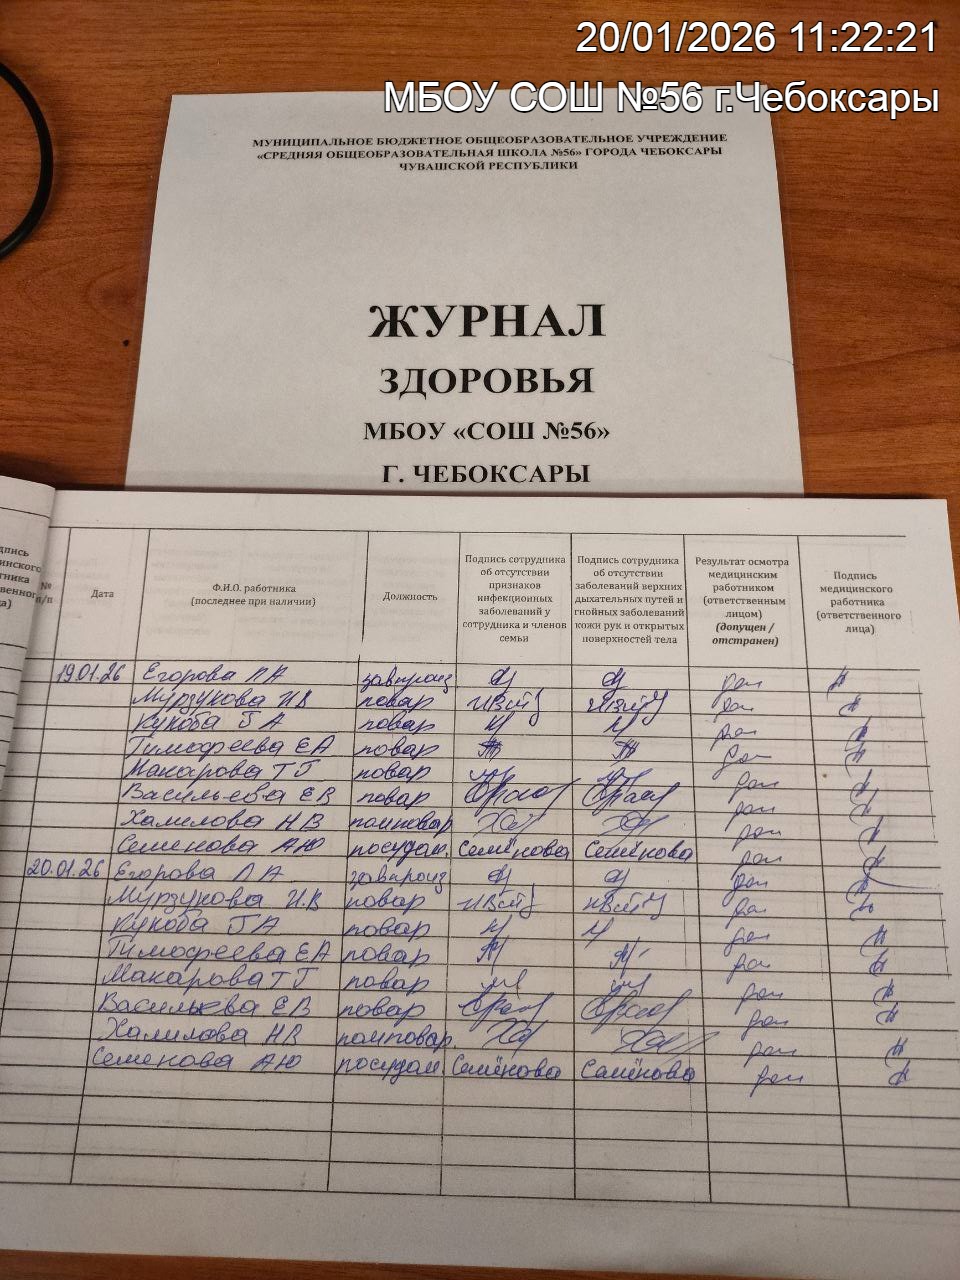 20/01/2026 11:22:21
МБОУ СОШ №56 г.Чебоксары
МУНИЦИПАЛЬНОЕ БЮДЖЕТНОЕ ОБЩЕОБРАЗОВАТЕЛЬНОЕ УЧРЕЖДЕНИЕ
«СРЕДНЯЯ ОБЩЕОБРАЗОВАТЕЛЬНАЯ ШКОЛА №56» ГОРОДА ЧЕБОКСАРЫ
ЧУВАШСКОЙ РЕСПУБЛИКИ
ЖУРНАЛ
ЗДОРОВЬЯ
МБОУ «СОШ №56»
Г. ЧЕБОКСАРЫ
№ п/п
Дата
Ф.И.О. работника
(последнее при наличии)
Должность
Подпись сотрудника
об отсутствии
признаков
инфекционных
заболеваний у
сотрудника и членов
семьи
Подпись сотрудника
об отсутствии
заболеваний верхних
дыхательных путей и
гнойных заболеваний
кожи рук и открытых
поверхностей тела
Результат осмотра
медицинским
работником
(ответственным
лицом)
(допущен /
отстранен)
Подпись
медицинского
работника
(ответственного
лица)
19.01.26 Егорова Л А завпроизв доп
Мурзукова И В повар доп
Кукоба Г А повар доп
Тимофеева Е А повар доп
Макарова Т Г повар доп
Васильева Е В повар доп
Халилова Н В помповар доп
Семенова А Ю посудом. Семёнова Семёнова доп
20.01.26 Егорова Л А завпроизв доп
Мурзукова И.В повар доп
Кукоба Г А повар доп
Тимофеева Е А повар доп
Макарова Т Г повар доп
Васильева Е В повар доп
Халилова Н В помповар доп
Семенова А Ю посудом Семёнова Семёнова доп